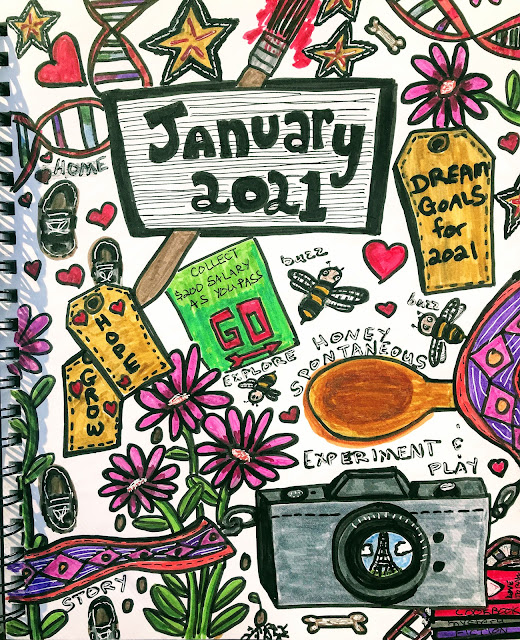 HOME
January
2021
DREAM
GOALS
for
2021
COLLECT
$200 SALARY
AS YOU PASS
GO
buzz
buzz
HOPE
GROW
EXPLORE
HONEY
SPONTANEOUS
EXPERIMENT &
PLAY
STORY
LOVE
COOKBOOK
FICTION